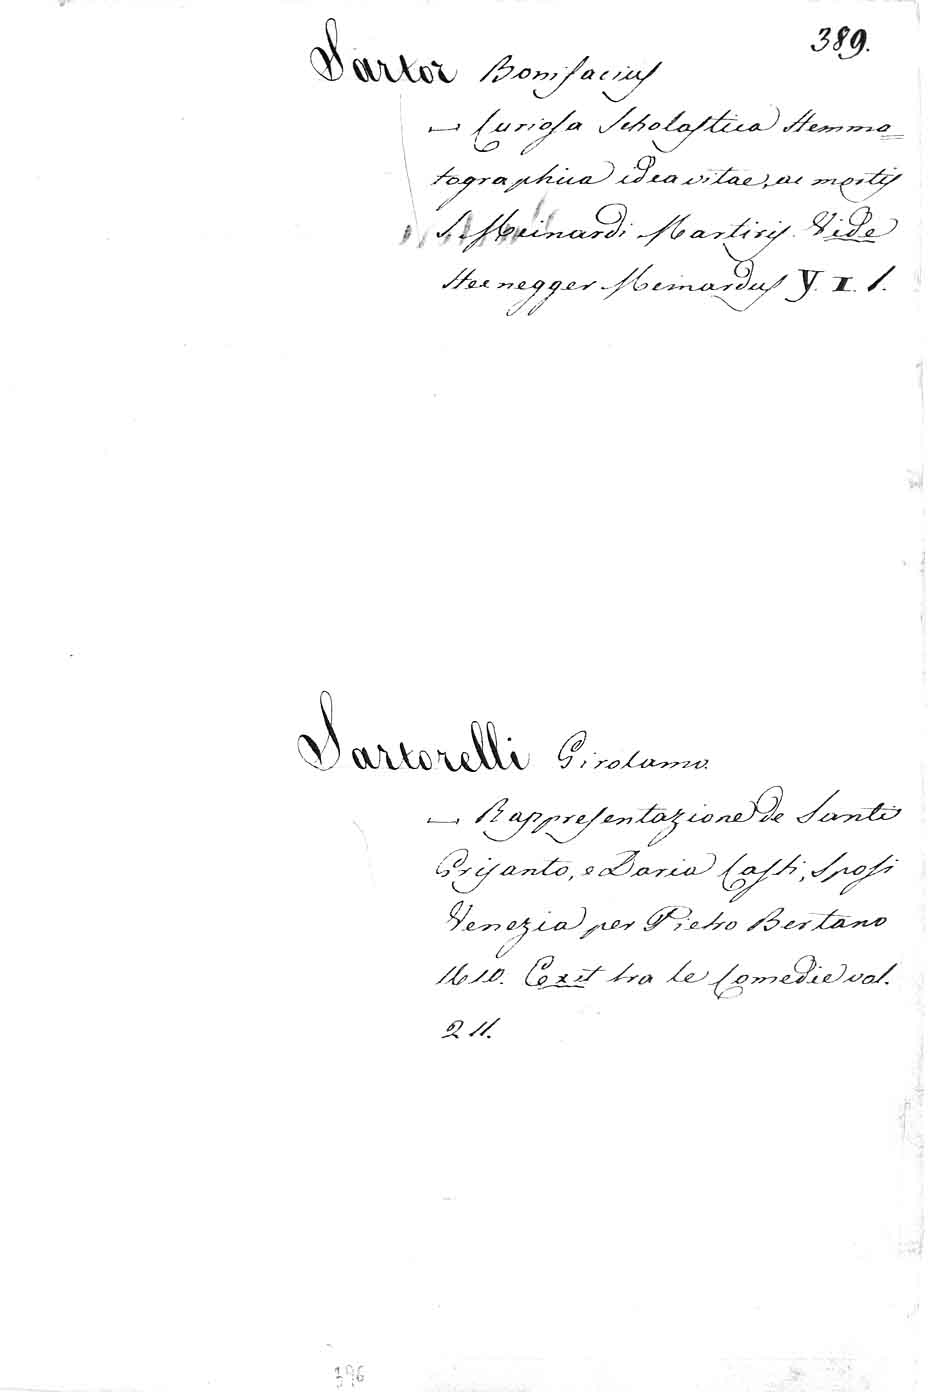 389.
Sartor Bonifacius
— Curiosa Scholastica Stemma=
tographica idea vitae, ac mortis
S. Meinardi Martiris. Vide
Steinegger Meinardus Y. I. 1.
Sartorelli Girolamo.
— Rappresentazione de Santi
Grisanto, e Daria Casti, Sposi
Venezia per Pietro Bertano
1610. Exit tra le Comedie vol.
211.
396